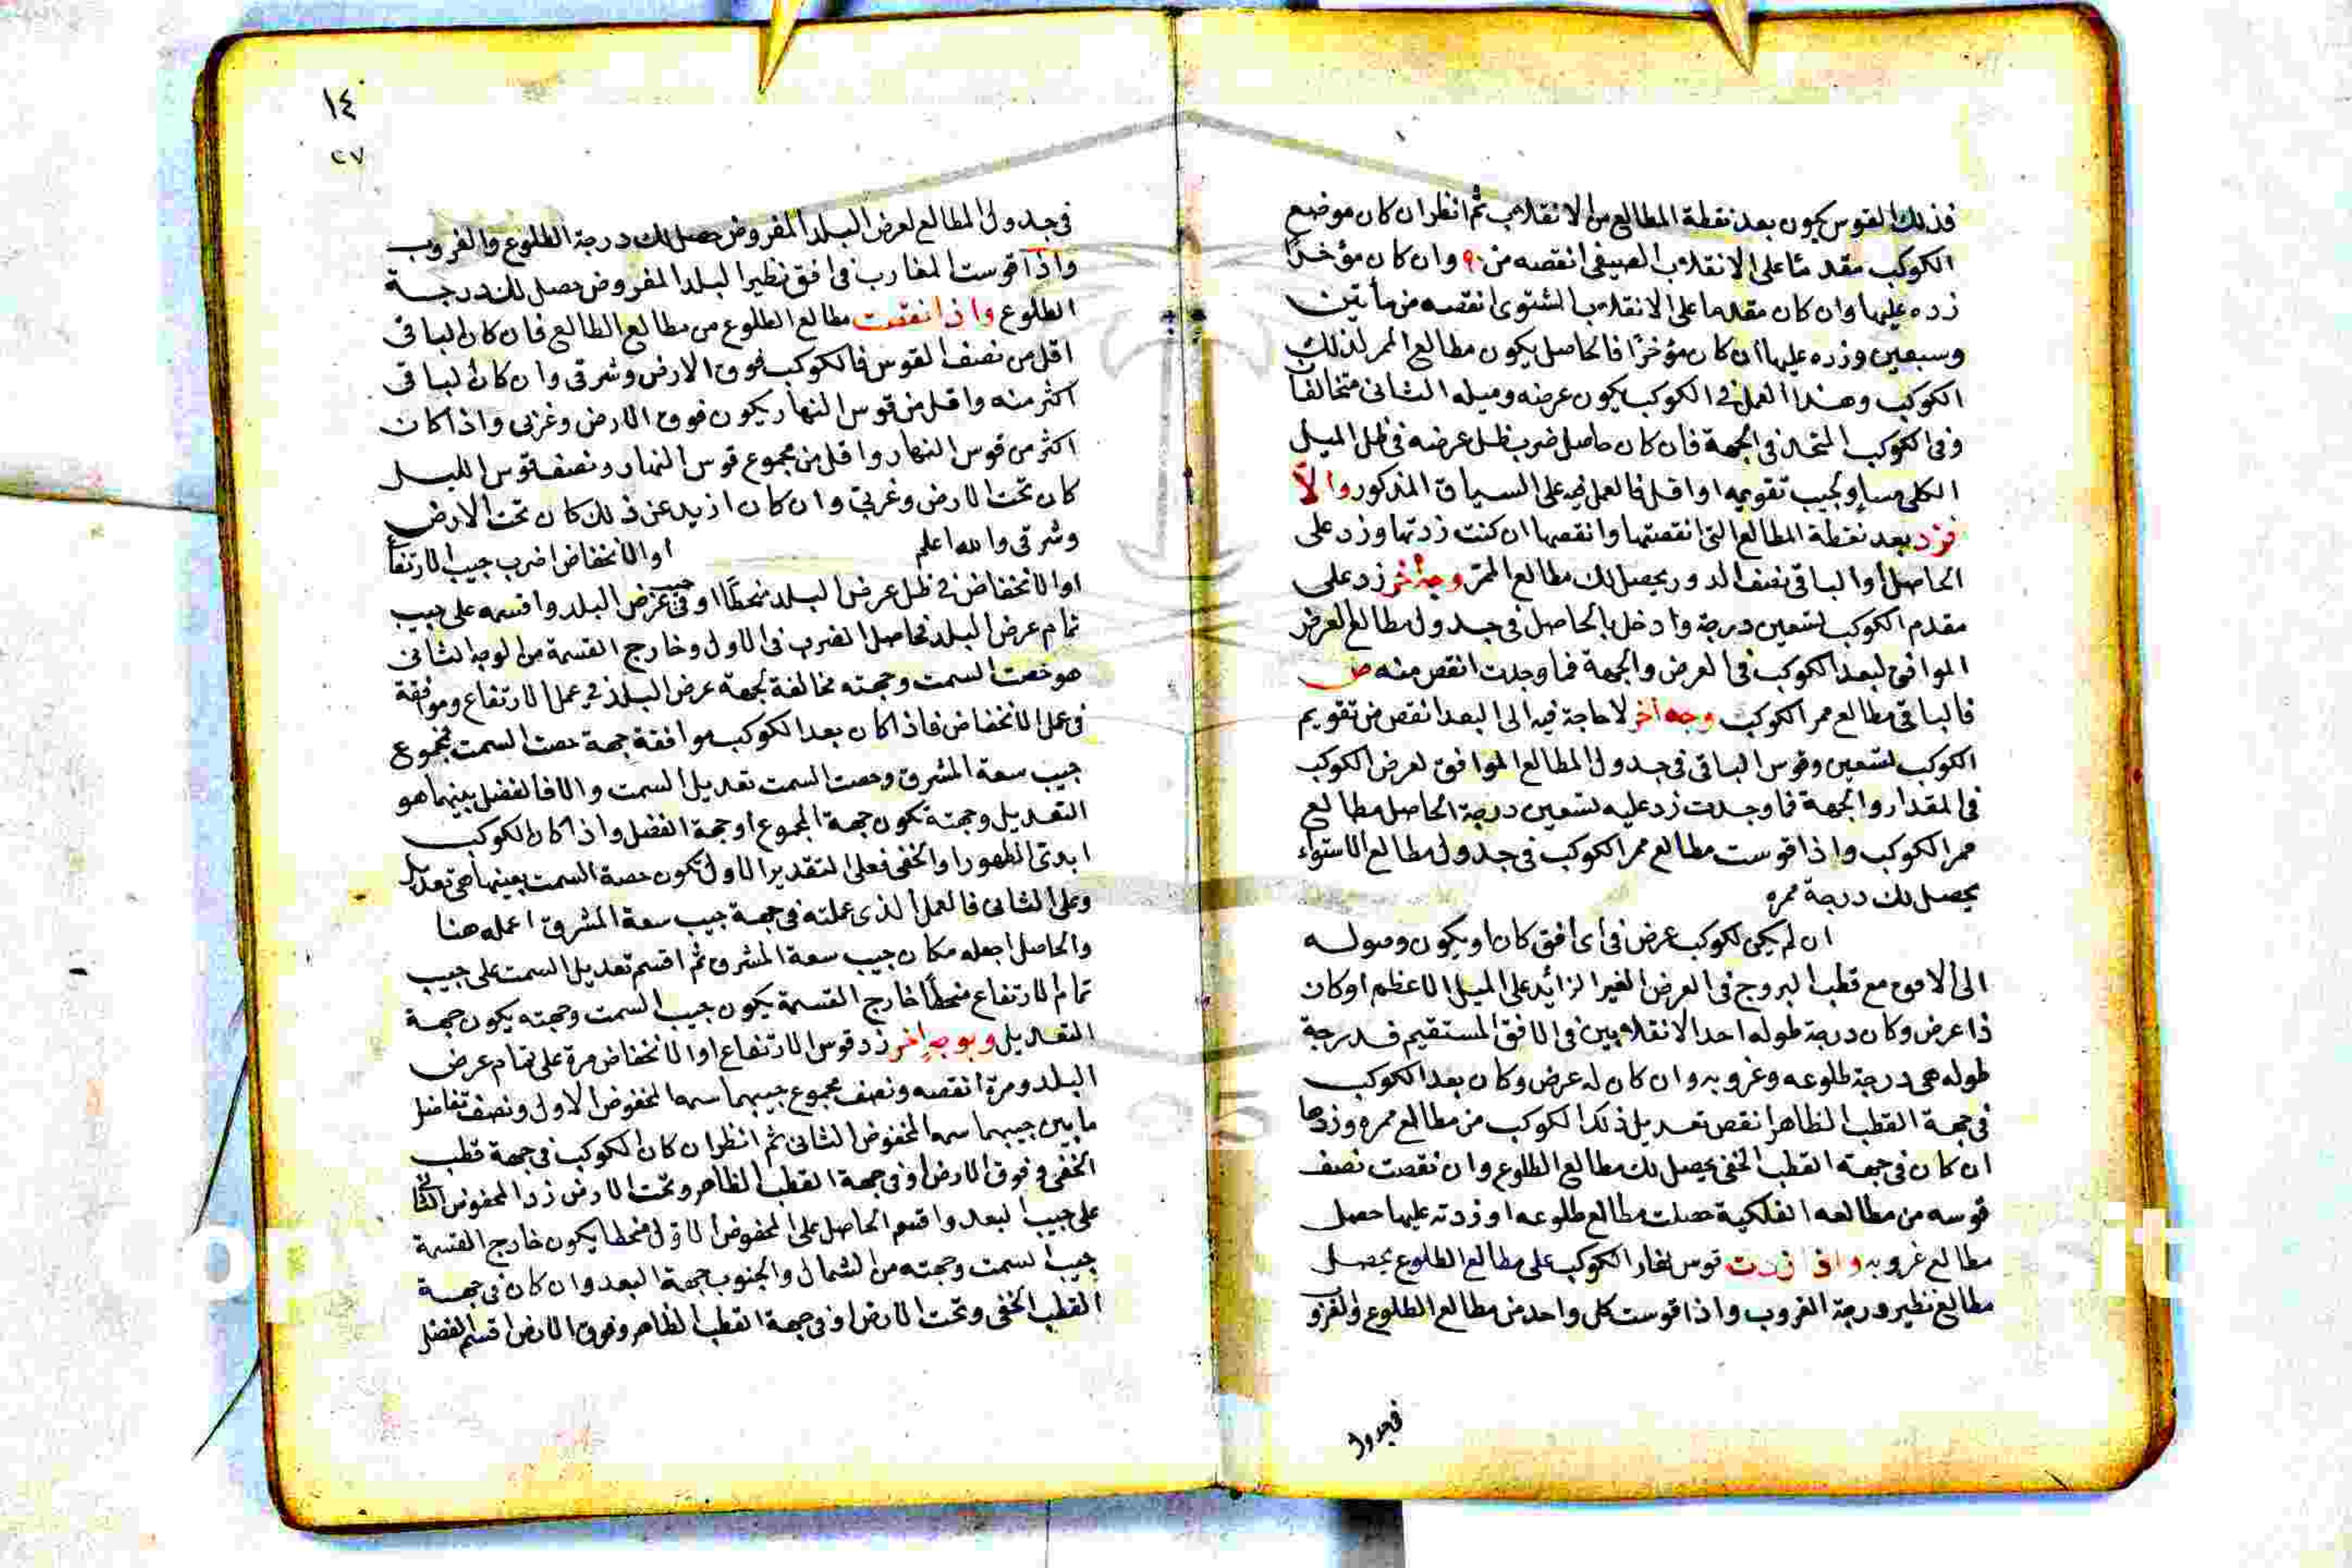 فذلك القوس يكون بعد نقطة المطالع من الانقلاب ثم انظر ان كان موضع
الكوكب مقدما على الانقلاب الصيفى انقصه من ٩٠ وان كان مؤخرا
زده عليها وان كان مقدما على الانقلاب الشتوى انقصه من مأتين
وسبعين وزده عليها ان كان مؤخرًا فالحاصل يكون مطالع الممر لذلك
الكوكب وهذا العمل فى الكوكب يكون عرضه وميله الثانى متخالفا
وفى الكوكب المتحد فى الجهة فان كان حاصل ضرب ظل عرضه فى ظل الميل
الكلى مساو لجيب تقويمه او اقل فالعمل فيه على السياق المذكور والّا
فزد بعد نقطة المطالع التى انقصتها وانقصها ان كنت زدتها وزد على
الحاصل او الباقى نصف الدور يحصل لك مطالع الممر وجه اخر زد على
مقدم الكوكب تسعين درجة وادخل بالحاصل فى جدول مطالع العرض
الموافق لبعد الكوكب فى العرض والجهة فما وجدت انقص منه ص
فالباقى مطالع ممر الكوكب وجه اخر لا حاجة فيه الى البعد انقص من تقويم
الكوكب تسعين وقوس الباقى فى جدول المطالع الموافق لعرض الكوكب
فى المقدار والجهة فما وجدت زد عليه تسعين درجة الحاصل مطالع
ممر الكوكب واذا قوست مطالع ممر الكوكب فى جدول مطالع الاستواء
يحصل لك درجة ممره
ان لم يكن لكوكب عرض فى اى افق كان او يكون وصوله
الى الافق مع قطب البروج فى العرض الغير الزائد على الميل الاعظم او كان
ذا عرض وكان درجة طوله احد الانقلابين فى الافق المستقيم فدرجة
طوله هى درجة طلوعه وغروبه وان كان له عرض وكان بعد الكوكب
فى جهة القطب الظاهر انقص تعديل ذلك الكوكب من مطالع ممره وزدها
ان كان فى جهة القطب الخفى يحصل لك مطالع الطلوع وان نقصت نصف
قوسه من مطالعه الفلكية حصلت مطالع طلوعه او زدته عليها حصل
مطالع غروبه واذا زدت قوس نهار الكوكب على مطالع الطلوع يحصل
مطالع نظير درجة الغروب واذا قوست كل واحد من مطالع الطلوع والغرو
فى جدول
١٤
٢٧
فى جدول المطالع لعرض البلد المفروض حصل لك درجة الطلوع والغروب
واذا قوست المغارب فى افق نظير البلد المفروض حصل لك درجة
الطلوع واذا نقصت مطالع الطلوع من مطالع الطالع فان كان الباقى
اقل من نصف القوس فالكوكب فوق الارض وشرقى وان كان الباقى
اكثر منه واقل من قوس النهار يكون فوق الارض وغربى واذا كان
اكثر من قوس النهار واقل من مجموع قوس النهار ونصف قوس الليل
كان تحت الارض وغربى وان كان ازيد عن ذلك كان تحت الارض
وشرقى والله اعلم او الانخفاض اضرب جيب الارتفاع
او الانخفاض فى ظل عرض البلد منحطًا او فى جيب عرض البلد واقسمه على جيب
تمام عرض البلد فحاصل الضرب فى الاول وخارج القسمة من الوجه الثانى
هو حصت السمت وجهته مخالفة لجهة عرض البلد فى عمل الارتفاع وموافقة
فى عمل الانخفاض فاذا كان بعد الكوكب موافقة جهة حصت السمت فمجموع
جيب سعة المشرق وحصت السمت تعديل السمت والا فالفضل بينهما هو
التعديل وجهته تكون جهة المجموع او جهة الفضل واذا كان الكوكب
ابدى الظهور او الخفى فعلى التقدير الاول تكون حصة السمت بعينها هى تعديل
وعلى الثانى فالعمل الذى عملته فى جهة جيب سعة المشرق اعمله هنا
والحاصل اجعله مكان جيب سعة المشرق ثم اقسم تعديل السمت على جيب
تمام الارتفاع منحطًا خارج القسمة يكون جيب السمت وجهته يكون جهة
التعديل وبوجه اخر زد قوس الارتفاع او الانخفاض مرة على تمام عرض
البلد ومرة انقصه ونصف مجموع جيبهما سمه المحفوض الاول ونصف تفاضل
ما بين جيبهما سمه المحفوض الثانى ثم انظر ان كان الكوكب فى جهة قطب
الخفى وفوق الارض او فى جهة القطب الظاهر وتحت الارض زد المحفوض الثانى
على جيب البعد واقسم الحاصل على المحفوض الاول منحطا يكون خارج القسمة
جيب السمت وجهته من الشمال والجنوب جهة البعد وان كان فى جهة
القطب الخفى وتحت الارض او فى جهة القطب الظاهر وفوق الارض اقسم الفضل